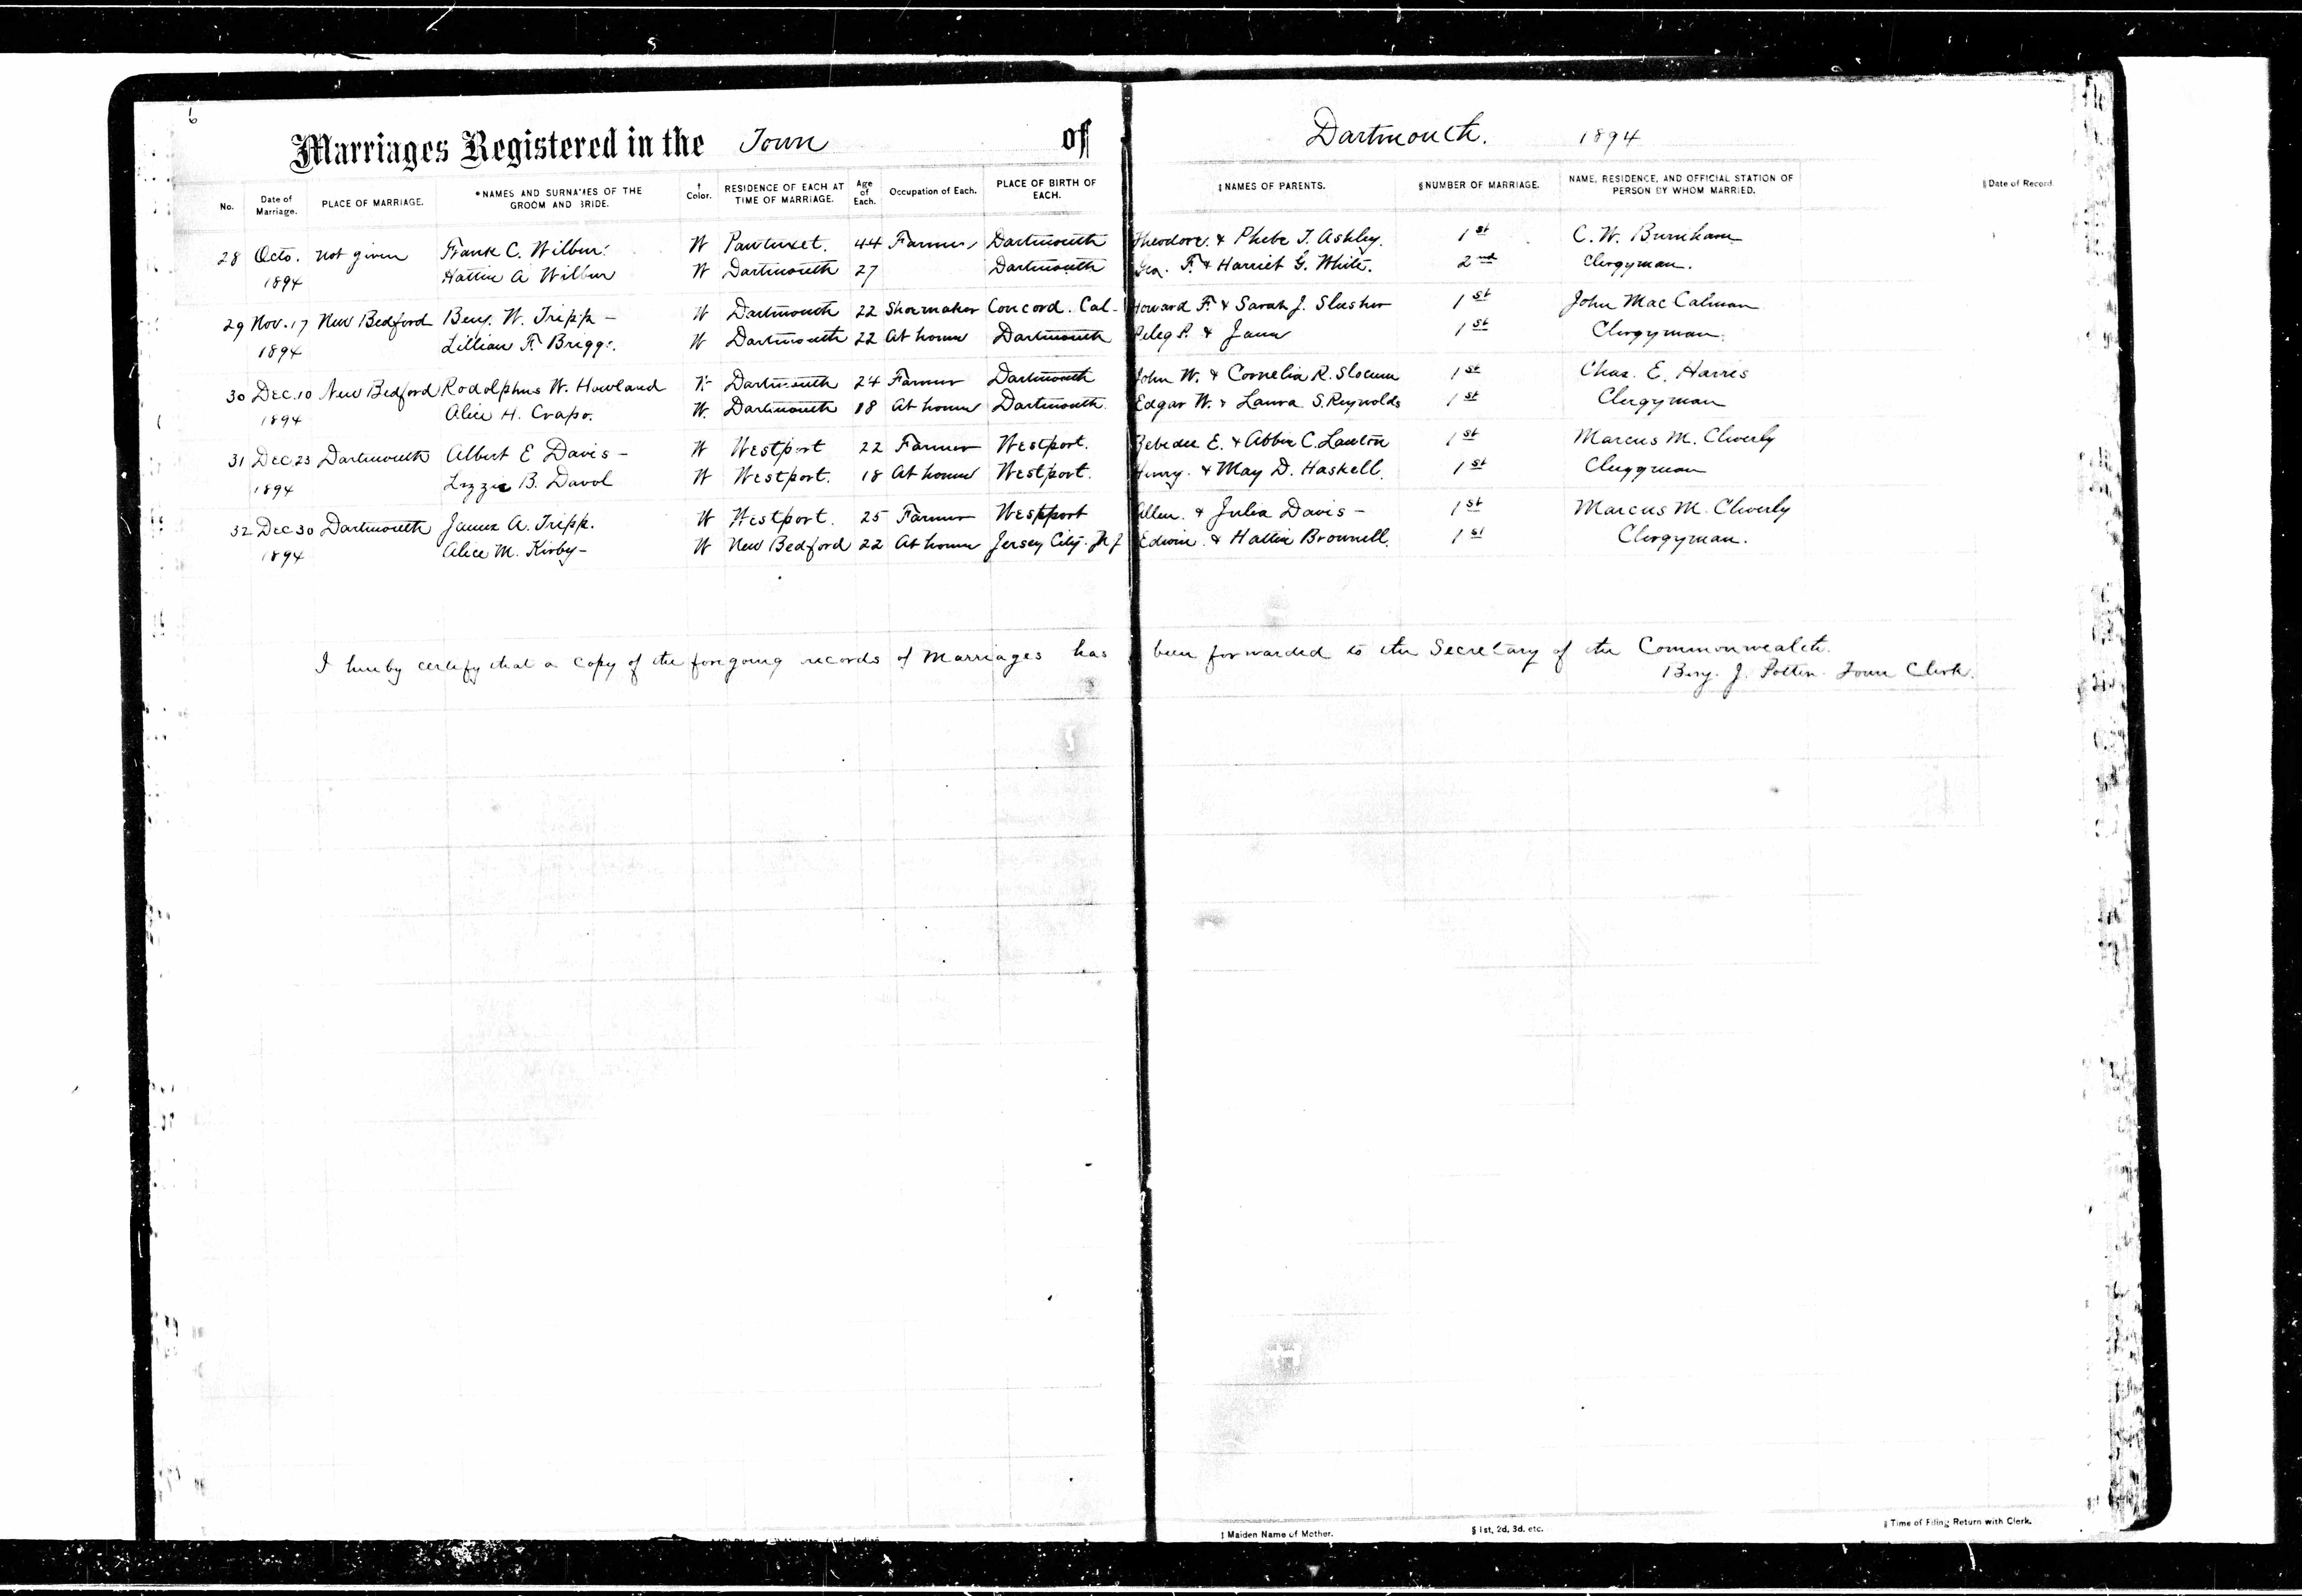 6
Marriages Registered in the Town of Dartmouth. 1894
No. Date of Marriage. PLACE OF MARRIAGE. *NAMES AND SURNAMES OF THE GROOM AND BRIDE. † Color. RESIDENCE OF EACH AT TIME OF MARRIAGE. Age of Each. Occupation of Each. PLACE OF BIRTH OF EACH. ‡NAMES OF PARENTS. §NUMBER OF MARRIAGE. NAME, RESIDENCE, AND OFFICIAL STATION OF PERSON BY WHOM MARRIED. ‖Date of Record.
28 Octo. not given Frank C. Wilbur. W Pawtuxet. 44 Farmer Dartmouth Theodore. & Phebe T. Ashley. 1st C. W. Burnham
1894 Hattie A Wilbur W Dartmouth 27 Dartmouth Geo. F. & Harriet G. White. 2nd Clergyman.
29 Nov. 17 New Bedford Benj. W. Tripp - W Dartmouth 22 Shoemaker Concord. Cal- Howard F. & Sarah J. Slusher 1st John Mac Calman
1894 Lillian F. Briggs. W Dartmouth 22 At home Dartmouth Peleg P. & Jane 1st Clergyman.
30 Dec. 10 New Bedford Rodolphus W. Howland W Dartmouth 24 Farmer Dartmouth John W. & Cornelia R. Slocum 1st Chas. E. Harris
1894 Alice H. Crapo. W. Dartmouth 18 At home Dartmouth. Edgar W. & Laura S. Reynolds 1st Clergyman
31 Dec 23 Dartmouth Albert E Davis - W Westport 22 Farmer Westport. Zebedee E. & Abbie C. Lawton 1st Marcus M. Cleverly
1894 Lizzie B. Davol W Westport. 18 At home Westport. Henry. & May D. Haskell. 1st Clergyman
32 Dec 30 Dartmouth James A. Tripp. W Westport. 25 Farmer Westport Allen. & Julia Davis - 1st Marcus M. Cleverly
1894 Alice M. Kirby - W New Bedford 22 At home Jersey City. N J Edwin. & Hattie Brownell. 1st Clergyman.
I hereby certify that a copy of the foregoing records of Marriages has been forwarded to the Secretary of the Commonwealth.
Benj. J. Potter. Town Clerk.
‡ Maiden Name of Mother. § 1st, 2d, 3d, etc. ‖ Time of Filing Return with Clerk.